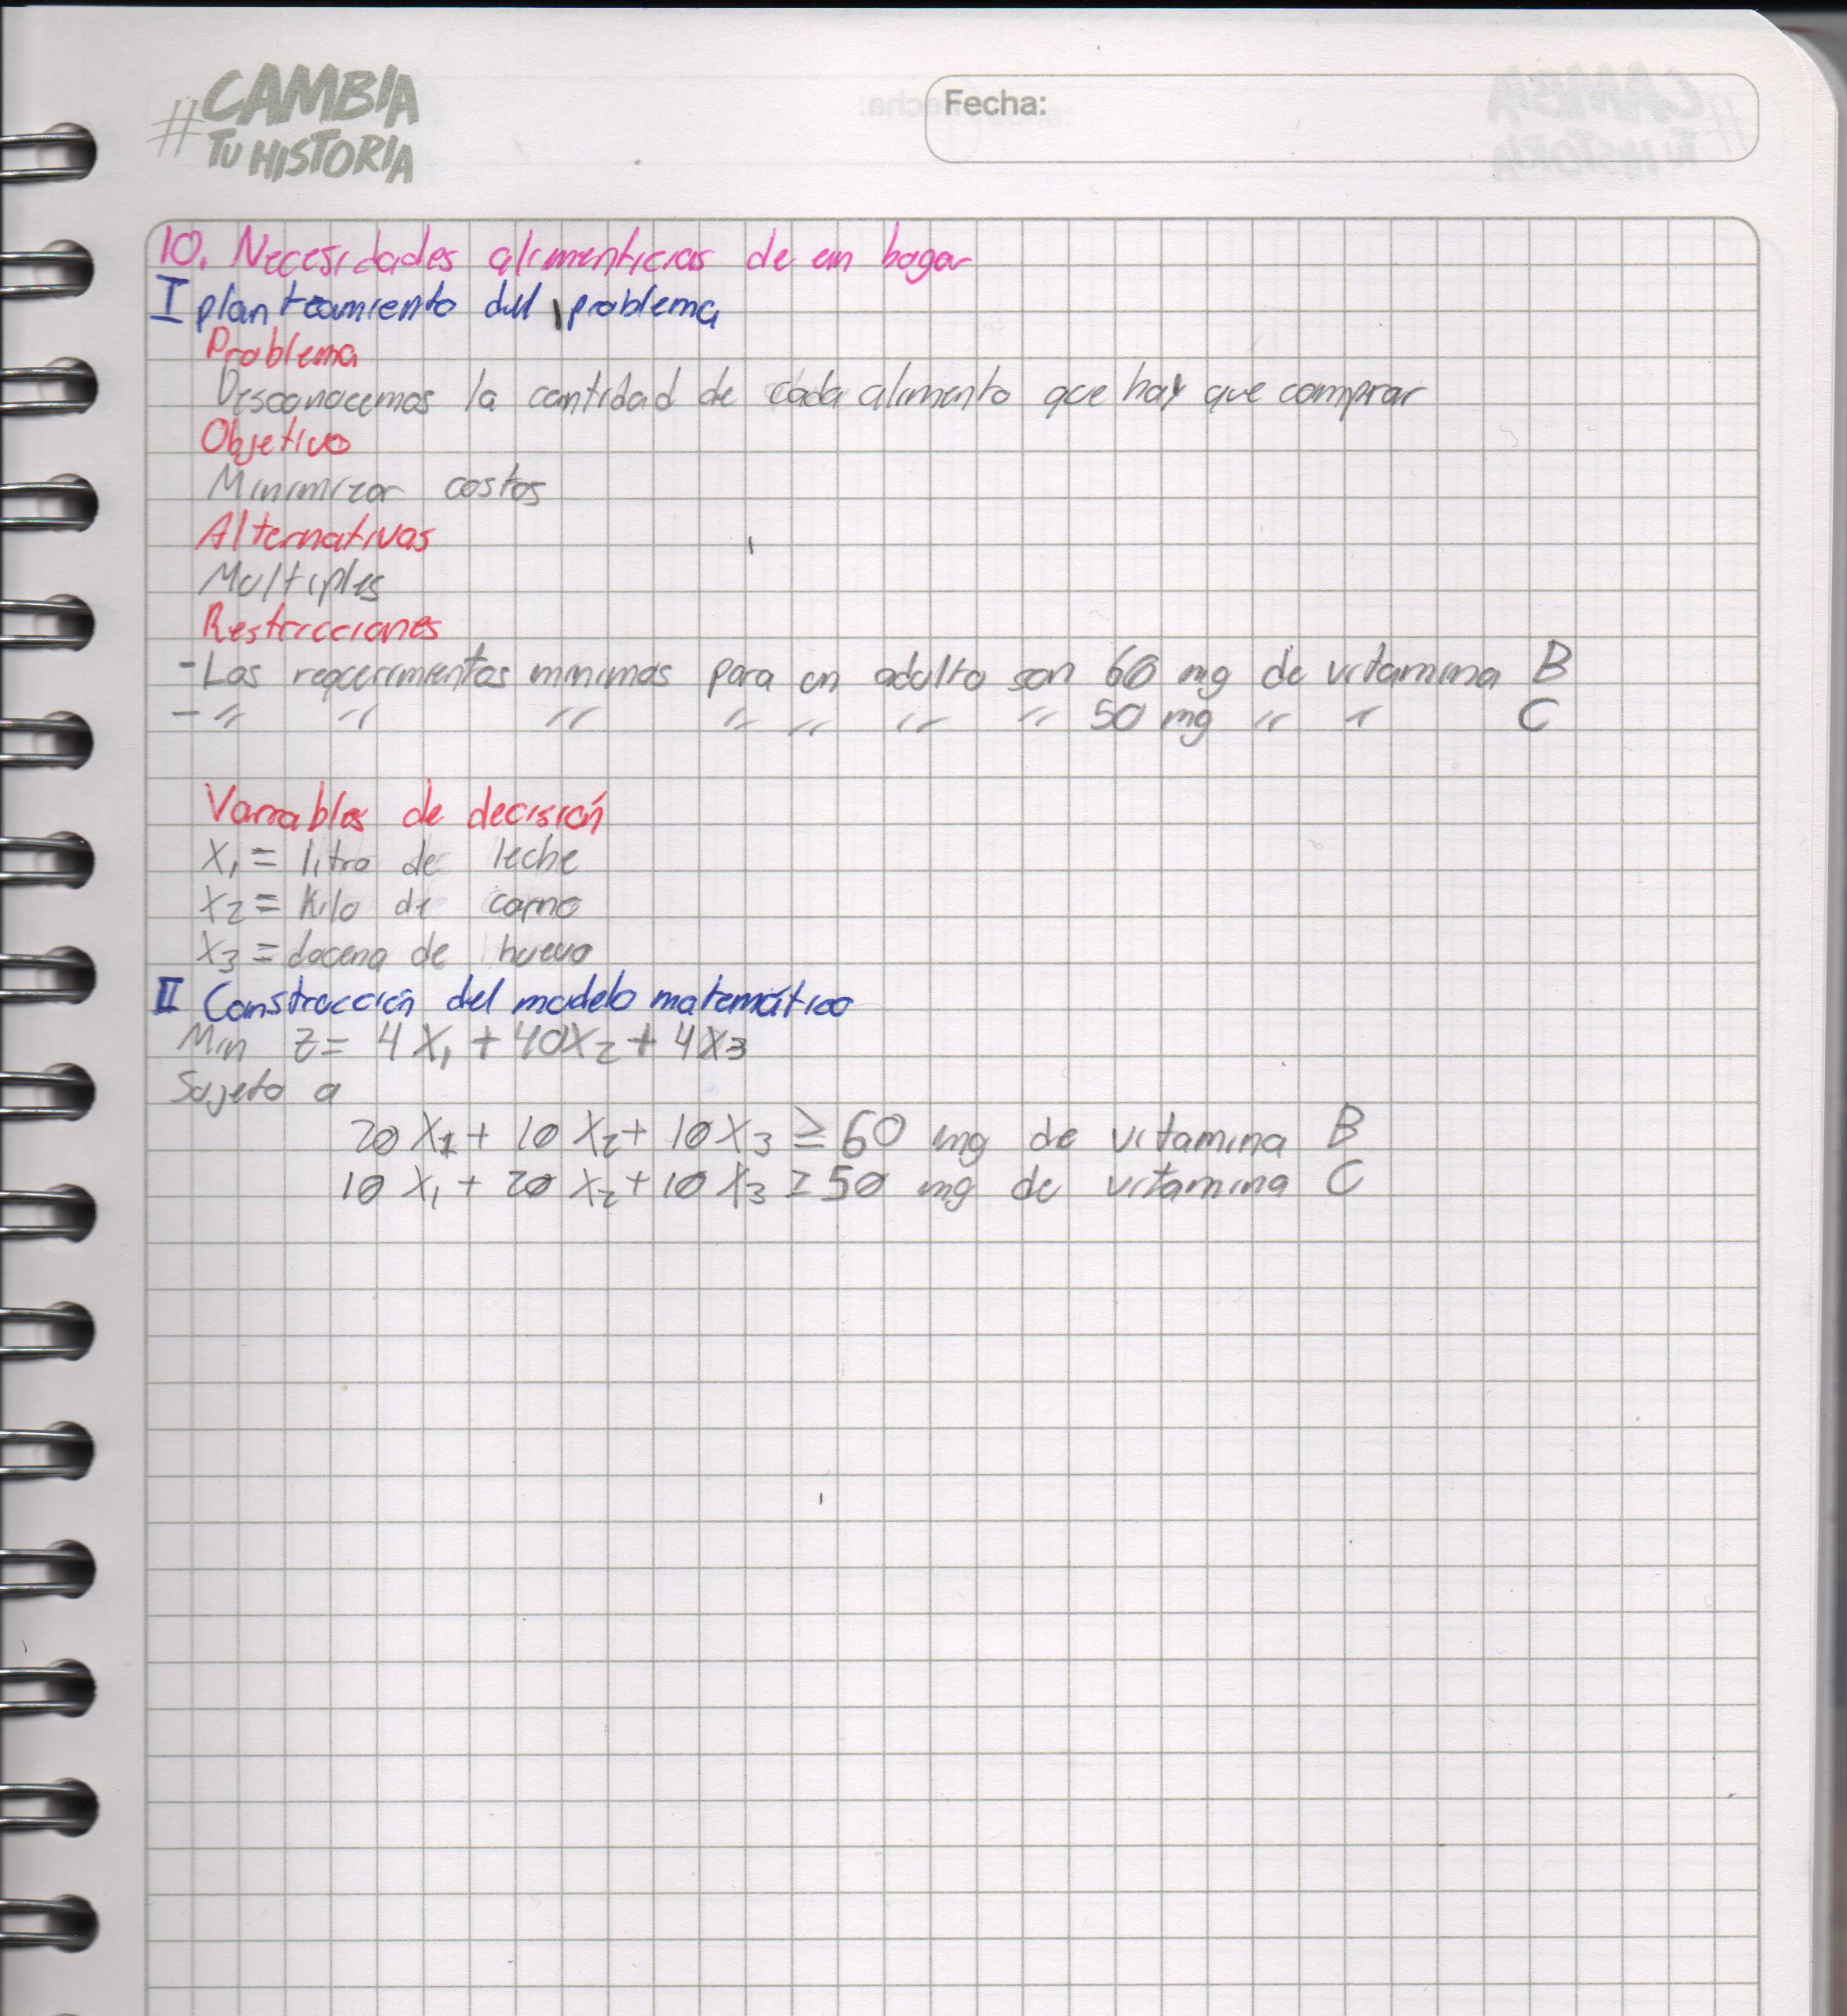 #CAMBIA
TU HISTORIA
Fecha:
10. Necesidades alimenticias de un hogar
I planteamiento del problema
Problema
Desconocemos la cantidad de cada alimento que hay que comprar
Objetivo
Minimizar costos
Alternativas
Multiples
Restricciones
- Los requerimientos minimos para un adulto son 60 mg de vitamina B
- " " " " " " " 50 mg " " C
Variables de decisión
X₁ = litro de leche
X₂ = Kilo de carne
X₃ = docena de huevo
II Construcción del modelo matemático
Min Z = 4X₁ + 40X₂ + 4X₃
Sujeto a
20X₁ + 10X₂ + 10X₃ ≥ 60 mg de vitamina B
10X₁ + 20X₂ + 10X₃ ≥ 50 mg de vitamina C